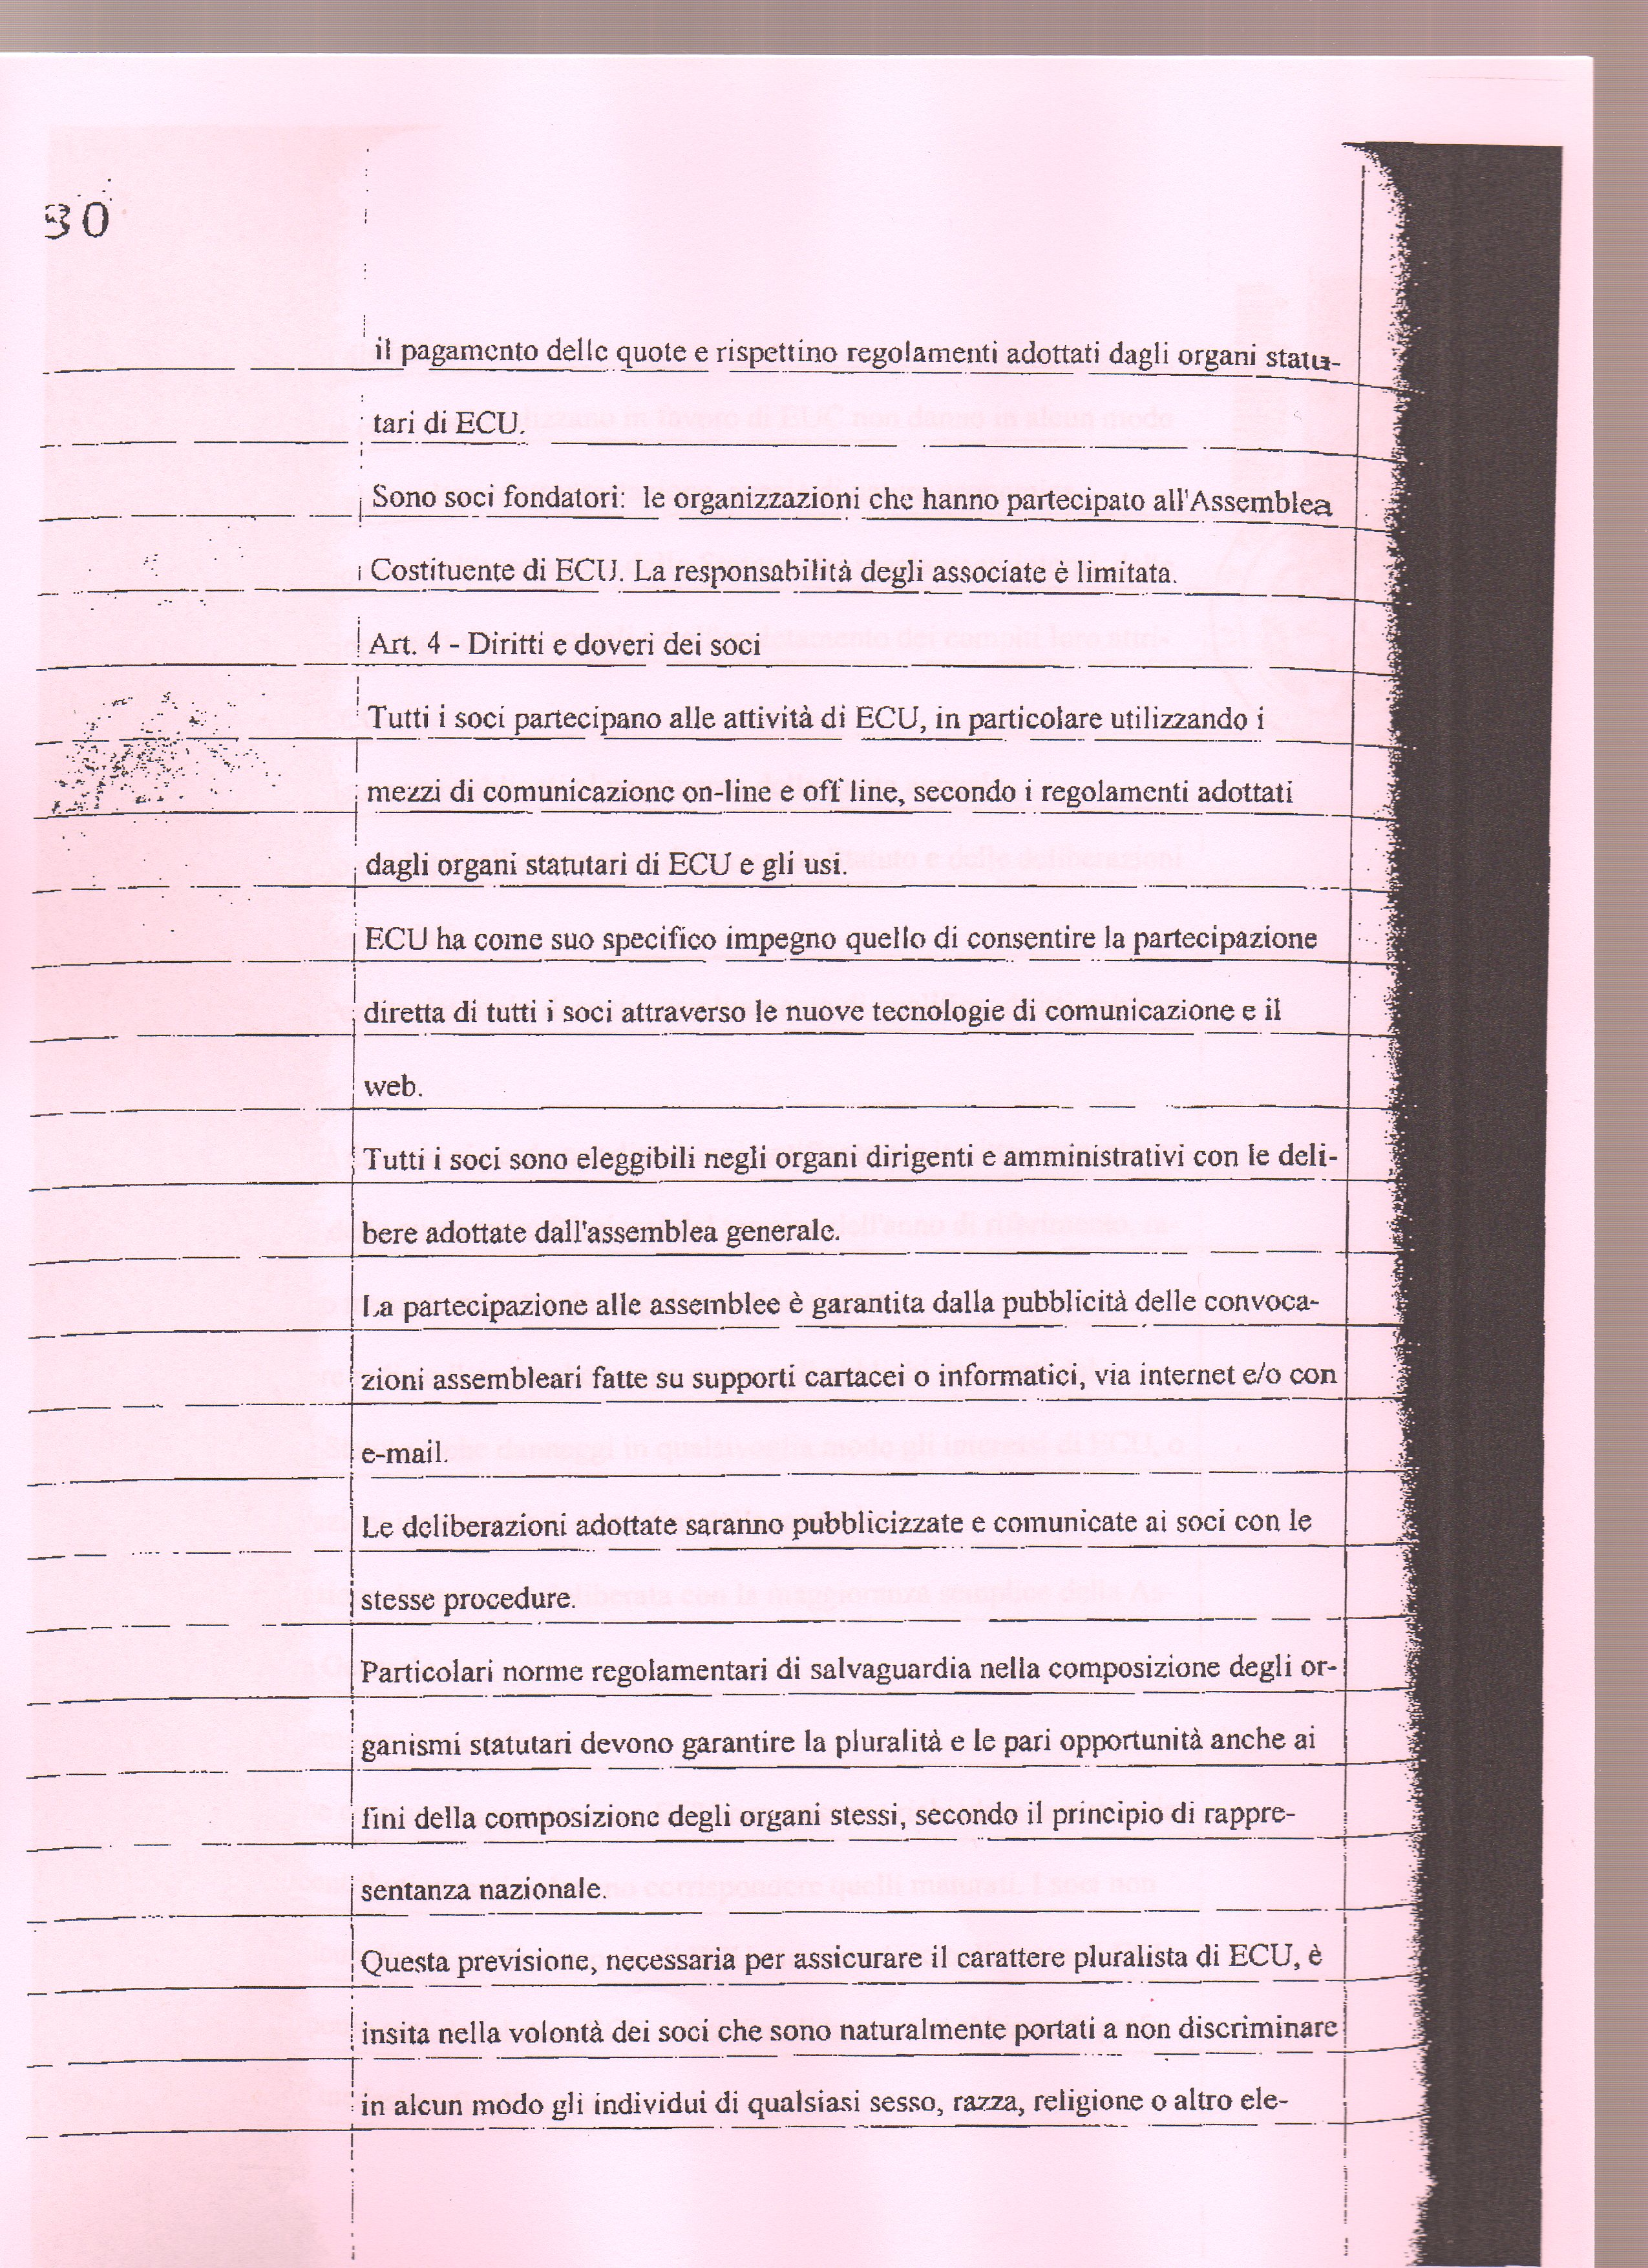 30
il pagamento delle quote e rispettino regolamenti adottati dagli organi statu-
tari di ECU.
Sono soci fondatori: le organizzazioni che hanno partecipato all'Assemblea
Costituente di ECU. La responsabilità degli associate è limitata.
Art. 4 - Diritti e doveri dei soci
Tutti i soci partecipano alle attività di ECU, in particolare utilizzando i
mezzi di comunicazione on-line e off line, secondo i regolamenti adottati
dagli organi statutari di ECU e gli usi.
ECU ha come suo specifico impegno quello di consentire la partecipazione
diretta di tutti i soci attraverso le nuove tecnologie di comunicazione e il
web.
Tutti i soci sono eleggibili negli organi dirigenti e amministrativi con le deli-
bere adottate dall'assemblea generale.
La partecipazione alle assemblee è garantita dalla pubblicità delle convoca-
zioni assembleari fatte su supporti cartacei o informatici, via internet e/o con
e-mail.
Le deliberazioni adottate saranno pubblicizzate e comunicate ai soci con le
stesse procedure.
Particolari norme regolamentari di salvaguardia nella composizione degli or-
ganismi statutari devono garantire la pluralità e le pari opportunità anche ai
fini della composizione degli organi stessi, secondo il principio di rappre-
sentanza nazionale.
Questa previsione, necessaria per assicurare il carattere pluralista di ECU, è
insita nella volontà dei soci che sono naturalmente portati a non discriminare
in alcun modo gli individui di qualsiasi sesso, razza, religione o altro ele-